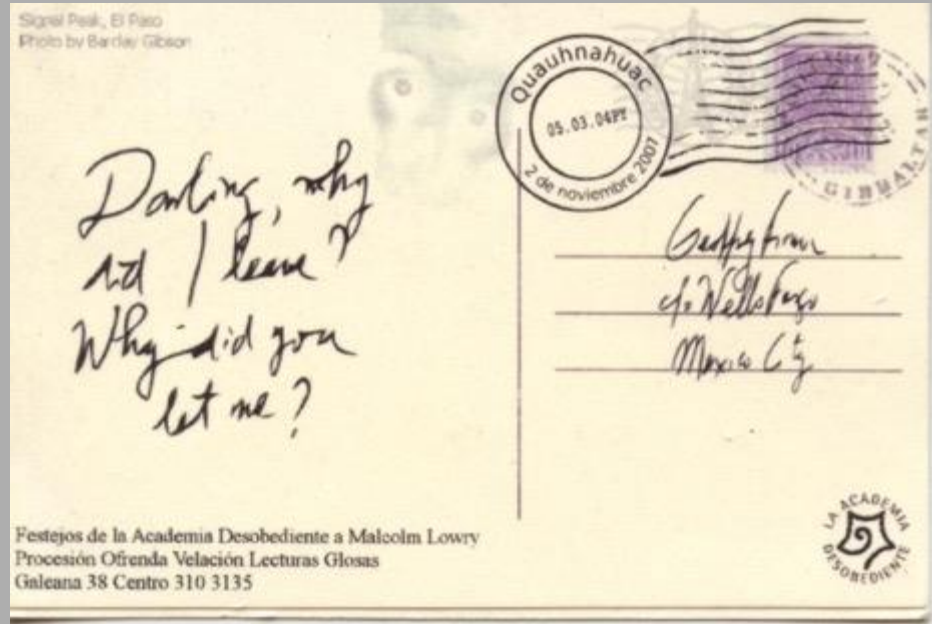 Signal Peak, El Paso
Photo by Barclay Gibson
Quauhnahuac
05.03.04PT
2 de noviembre 2007
GIBRALTAR
Darling, why
did I leave?
Why did you
let me?
Geoffrey Firmin
c/o Wells Fargo
Mexico City
Festejos de la Academia Desobediente a Malcolm Lowry
Procesión Ofrenda Velación Lecturas Glosas
Galeana 38 Centro 310 3135
LA ACADEMIA
DESOBEDIENTE